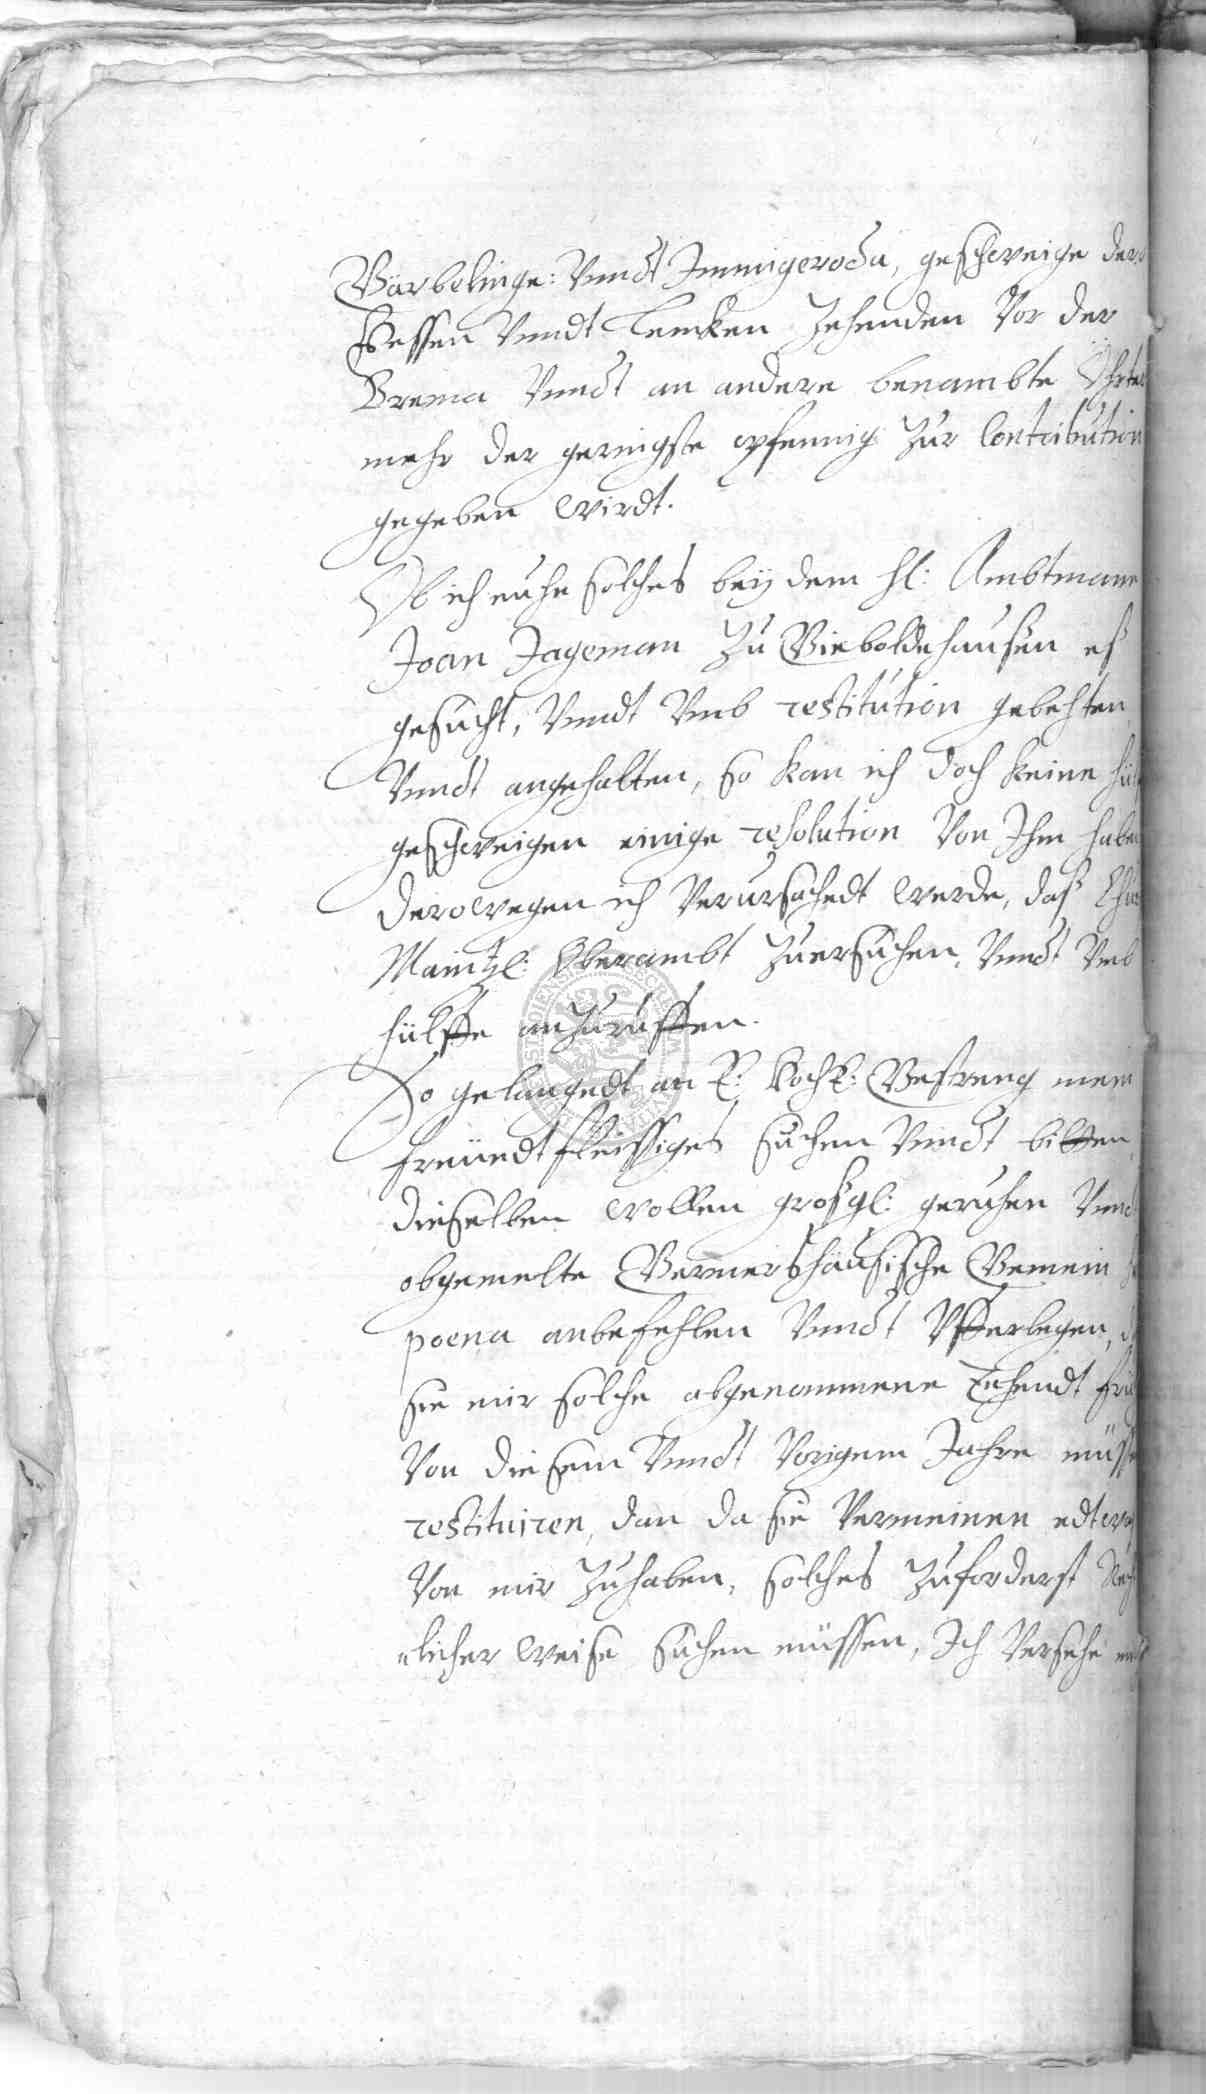 Görbelinge: Vnndt Immigeroda, geschweige der
Hessen Vnndt Lencken Zehenden Vor der
Brema Vnndt an andere benambte Öhrter
mehr der geringste pfennig Zur Contribution
gegeben wirdt.
Ob ich nuhn solches beÿ dem hl: Ambtmann
Joan Jageman Zu Gieboldehausen
gesucht, Vnndt Vmb restitution gebehten
Vnndt angehalten, so kan ich doch keine
geschweigen einige resolution Von Ihm haben
derowegen ich Verursachedt werde, daß
Maintzl: Oberambt Zuersuchen, Vnndt Vmb
hülffe anzuruffen.
So gelangedt an E: Hoch: Gestreng mein
freundtfleissiges suchen Vnndt bitten,
dieselben wollen großgl: geruhen Vnndt
obgemelte Germershäusische Gemein
poena anbefehlen Vnndt Vfferlegen,
sie mir solche abgenommene Zehendt
Von diesem Vnndt Vorigem Jahre müssen
restituiren, dan da sie Vermeinen edtwaß
Von mir Zuhaben, solches Zuforderst
licher weise suchen müssen, Ich Versehe